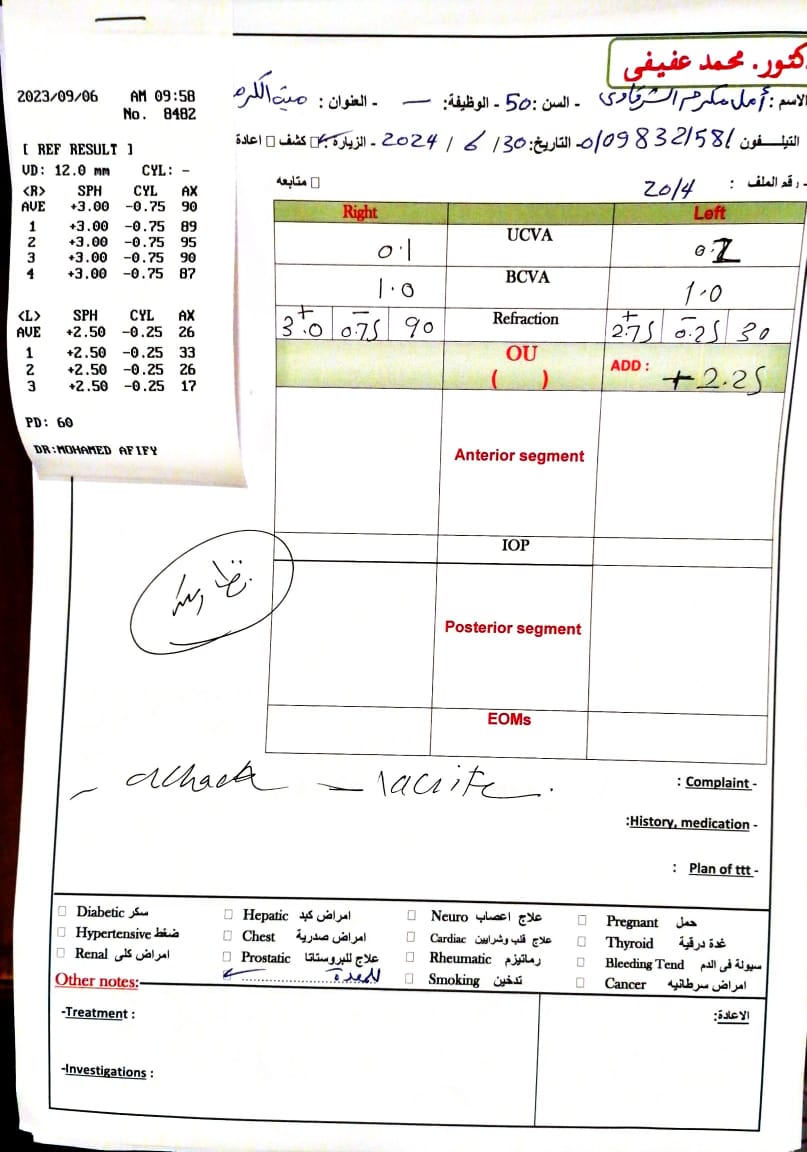 دكتور. محمد عفيفى
الاسم : أمل مكرم الشرقاوى - السن : 50 - الوظيفة: — - العنوان : ميت الكرم
التيلـــفون 01098321581 - التاريخ: 30 / 6 / 2024 - الزيارة: كشف اعادة
- رقم الملف : 20/4 متابعه
2023/09/06 AM 09:58
No. 8482
[ REF RESULT ]
VD: 12.0 mm CYL: -
<R> SPH CYL AX
AVE +3.00 -0.75 90
1 +3.00 -0.75 89
2 +3.00 -0.75 95
3 +3.00 -0.75 90
4 +3.00 -0.75 87
<L> SPH CYL AX
AVE +2.50 -0.25 26
1 +2.50 -0.25 33
2 +2.50 -0.25 26
3 +2.50 -0.25 17
PD: 60
DR:MOHAMED AFIFY
Right Left
0.1 UCVA 0.2
1.0 BCVA 1.0
+3.0 -0.75 90 Refraction +2.75 -0.25 30
OU
( ) ADD : +2.25
Anterior segment
IOP
نظارته
Posterior segment
EOMs
: Complaint -
:History, medication -
: Plan of ttt -
Diabetic سكر Hepatic امراض كبد Neuro علاج اعصاب Pregnant حمل
Hypertensive ضغط Chest امراض صدرية Cardiac علاج قلب وشرايين Thyroid غدة درقية
Renal امراض كلى Prostatic علاج للبروستاتا Rheumatic رماتيزم Bleeding Tend سيولة فى الدم
Other notes: المعدة Smoking تدخين Cancer امراض سرطانيه
-Treatment : الاعادة:
-Investigations :